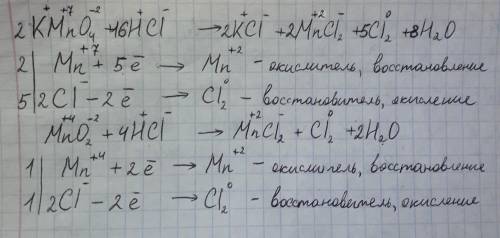 2K⁺Mn⁺⁷O₄⁻² + 16H⁺Cl⁻ → 2K⁺Cl⁻ + 2Mn⁺²Cl₂⁻ + 5Cl₂⁰ + 8H₂O
2| Mn⁺⁷ + 5ē → Mn⁺² - окислитель, восстановление
5| 2Cl⁻ - 2ē → Cl₂⁰ - восстановитель, окисление
Mn⁺⁴O₂⁻² + 4H⁺Cl⁻ → Mn⁺²Cl₂⁻ + Cl₂⁰ + 2H₂O
1| Mn⁺⁴ + 2ē → Mn⁺² - окислитель, восстановление
1| 2Cl⁻ - 2ē → Cl₂⁰ - восстановитель, окисление